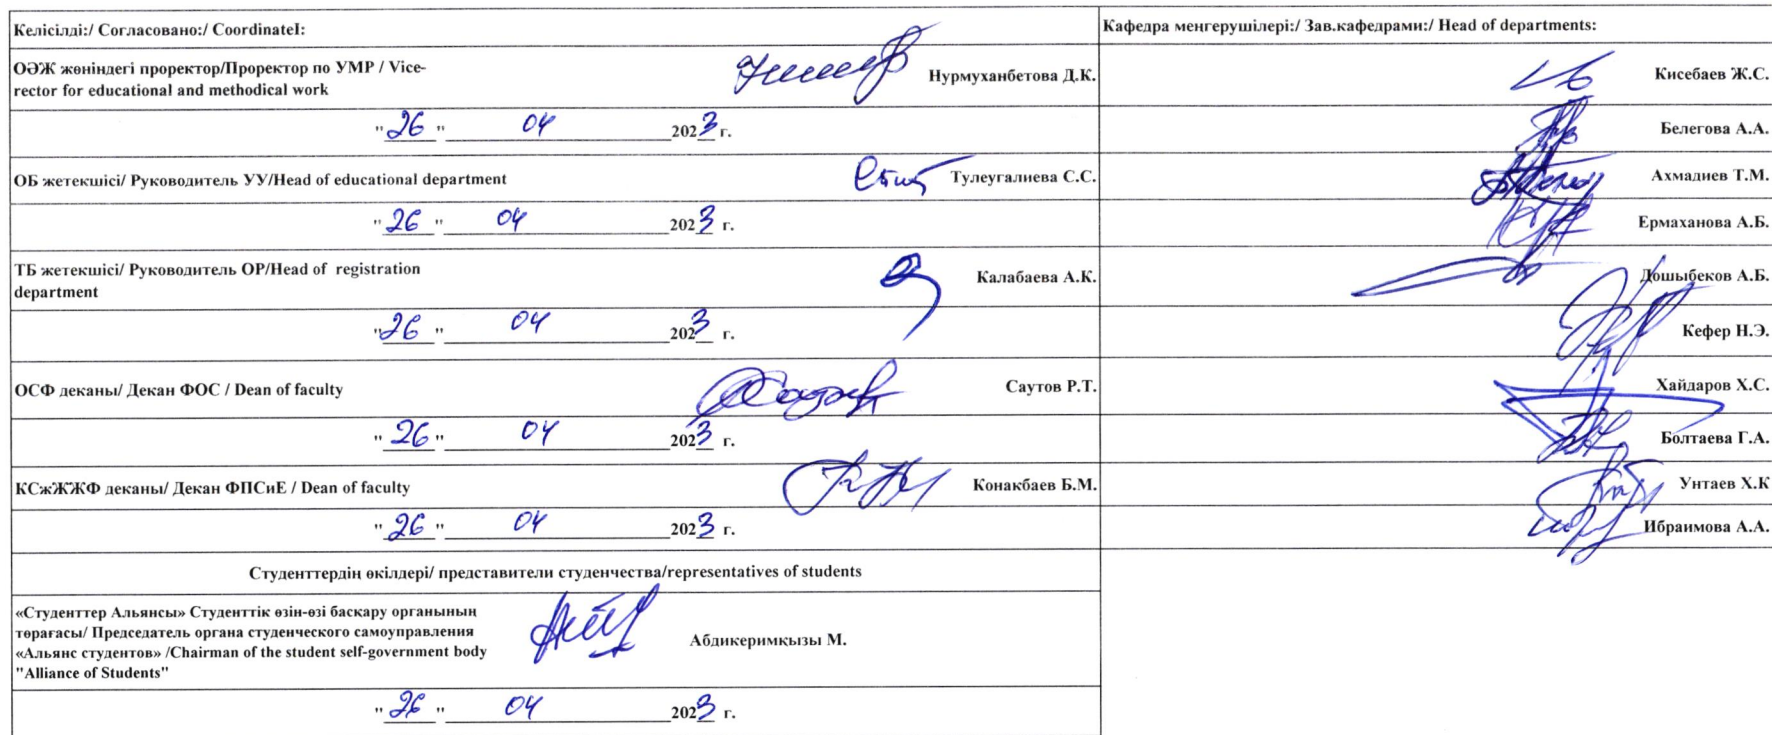 Келісілді:/ Согласовано:/ CoordinateI:
ОӘЖ жөніндегі проректор/Проректор по УМР / Vice-
rector for educational and methodical work
Нурмуханбетова Д.К.
"26" 04 2023 г.
ОБ жетекшісі/ Руководитель УУ/Head of educational department
Тулеугалиева С.С.
"26" 04 2023 г.
ТБ жетекшісі/ Руководитель ОР/Head of registration
department
Калабаева А.К.
"26" 04 2023 г.
ОСФ деканы/ Декан ФОС / Dean of faculty
Саутов Р.Т.
"26" 04 2023 г.
КСжЖЖФ деканы/ Декан ФПСиЕ / Dean of faculty
Конакбаев Б.М.
"26" 04 2023 г.
Студенттердің өкілдері/ представители студенчества/representatives of students
«Студенттер Альянсы» Студенттік өзін-өзі баскару органының
төрағасы/ Председатель органа студенческого самоуправления
«Альянс студентов» /Chairman of the student self-government body
"Alliance of Students"
Абдикеримқызы М.
"26" 04 2023 г.
Кафедра меңгерушілері:/ Зав.кафедрами:/ Head of departments:
Кисебаев Ж.С.
Белегова А.А.
Ахмадиев Т.М.
Ермаханова А.Б.
Дошыбеков А.Б.
Кефер Н.Э.
Хайдаров Х.С.
Болтаева Г.А.
Унтаев Х.К
Ибраимова А.А.